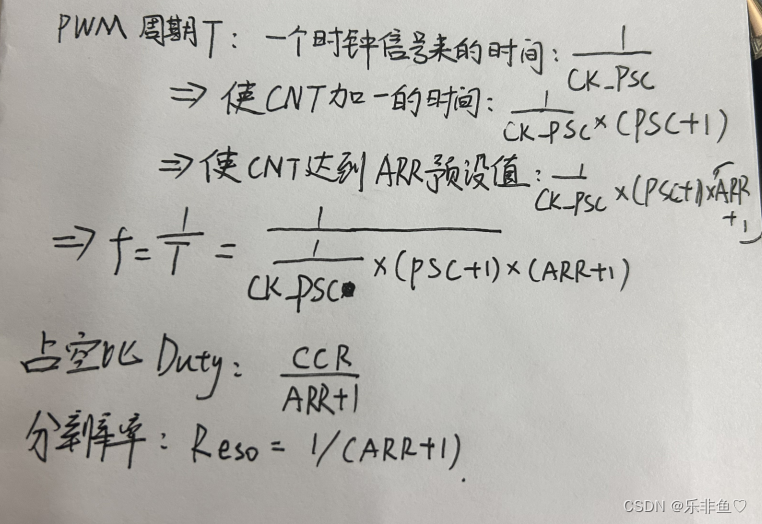 PWM 周期T: 一个时钟信号来的时间: 1/CK_PSC
⇒ 使CNT加一的时间: 1/CK_PSC×(PSC+1)
⇒使CNT达到ARR预设值: 1/CK_PSC×(PSC+1)×(ARR+1)
⇒ f=1/T=1/(1/CK_PSC×(PSC+1)×(ARR+1))
占空比 Duty: CCR/ARR+1
分辨率: Reso=1/(ARR+1).
CSDN @乐非鱼♡